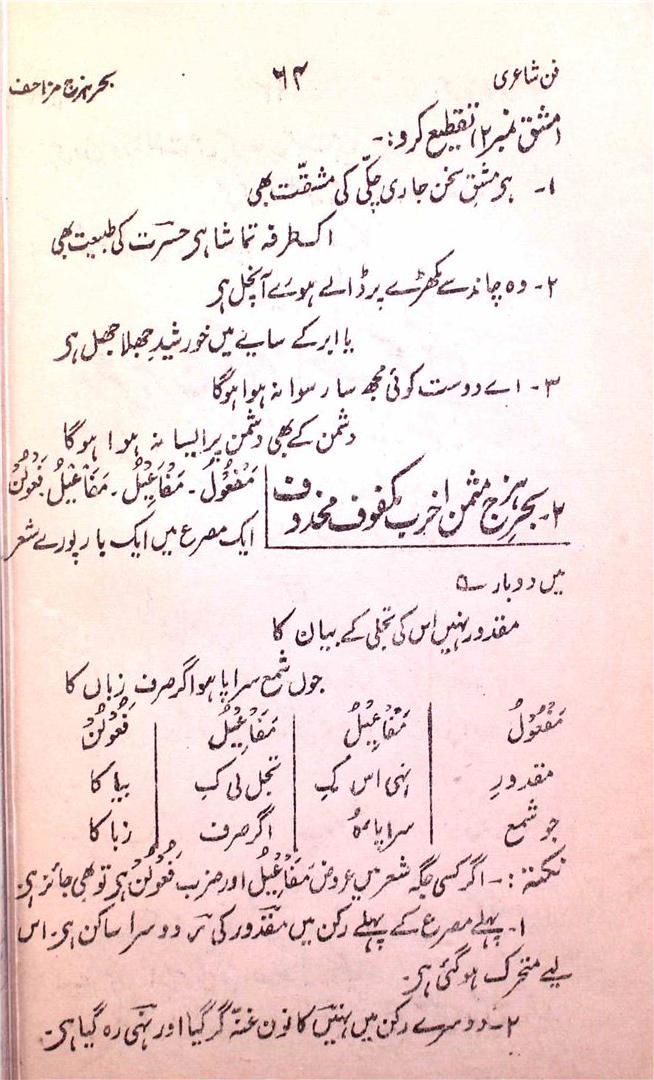 فن شاعری ۶۴ بحر ہزج مزاحف
(مشق نمبر ۲) تقطیع کرو:-
۱- ہی مشقِ سخن جاری چکّی کی مشقّت بھی
اک طرفہ تماشا ہی حسرت کی طبیعت بھی
۲- وہ چاند سے مکھڑے پر ڈالے ہوے آنچل ہی
یا ابر کے سایے میں خورشید جھلا جھل ہی
۳- اے دوست کوئی مجھ سا رسوا نہ ہوا ہوگا
دشمن کے بھی دشمن پر ایسا نہ ہوا ہوگا
۲- بحرِ ہزج مثمن اخرب مکفوف محذوف مَفْعُوْلُ - مَفَاعِیْلُ - مَفَاعِیْلُ فَعُوْلُنْ
ایک مصرع میں ایک بار پورے شعر
میں دو بار ؎
مقدور نہیں اس کی تجلی کے بیان کا
جوں شمع سراپا ہو اگر صرف زباں کا
مَفْعُوْلُ مَفَاعِیْلُ مَفَاعِیْلُ فَعُوْلُنْ
مقدورِ نہی اس کِ تجل لی کِ بیا کا
جو شمع سراپا ہُ اگر صرف زبا کا
نکتہ:- اگر کسی جگہ شعر میں عروض مَفَاعِیْلُ اور ضرب فَعُوْلُنْ ہی تو بھی جائز ہی۔
۱- پہلے مصرع کے پہلے رکن میں مقدور کی ر دوسرا ساکن ہی۔ اس
لیے متحرک ہو گئی ہی۔
۲- دوسرے رکن میں نہیں کا نون غنّہ گر گیا اور نہی رہ گیا ہی۔